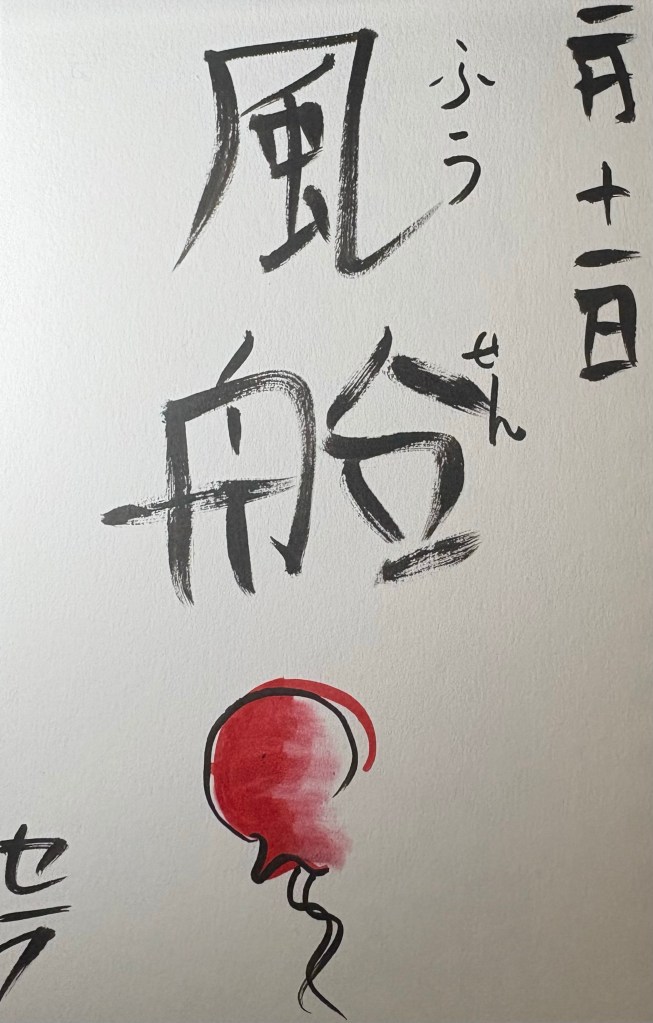 二月十一日
風船
ふうせん
セラ